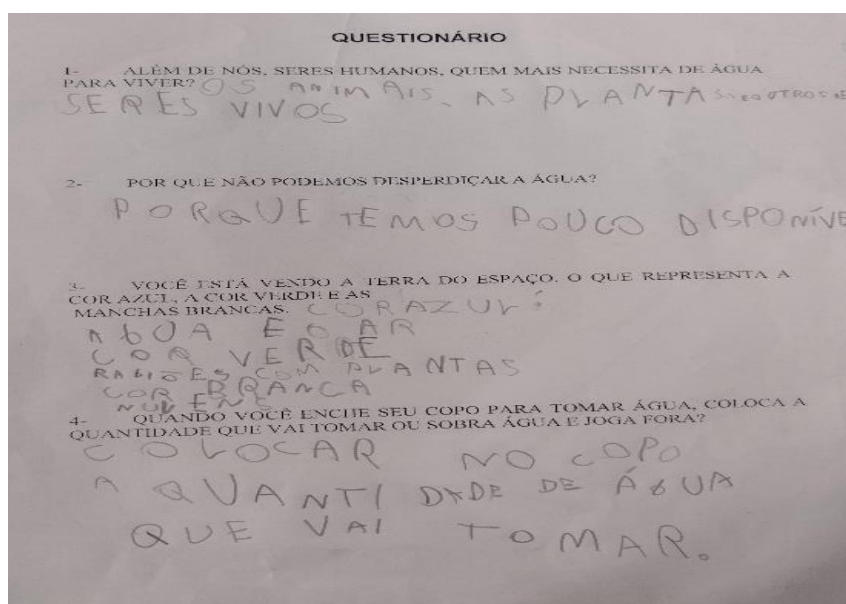 QUESTIONÁRIO
1- ALÉM DE NÓS, SERES HUMANOS, QUEM MAIS NECESSITA DE ÁGUA
PARA VIVER? OS ANIMAIS, AS PLANTAS
SERES VIVOS
2- POR QUE NÃO PODEMOS DESPERDIÇAR A ÁGUA?
PORQUE TEMOS POUCO DISPONÍVE
3- VOCÊ ESTÁ VENDO A TERRA DO ESPAÇO. O QUE REPRESENTA A
COR AZUL, A COR VERDE E AS
MANCHAS BRANCAS. COR AZUL:
AGUA E O AR
COR VERDE
COM PLANTAS
COR BRANCA
4- QUANDO VOCÊ ENCHE SEU COPO PARA TOMAR ÁGUA, COLOCA A
QUANTIDADE QUE VAI TOMAR OU SOBRA ÁGUA E JOGA FORA?
COLOCAR NO COPO
A QUANTIDADE DE ÁGUA
QUE VAI TOMAR.